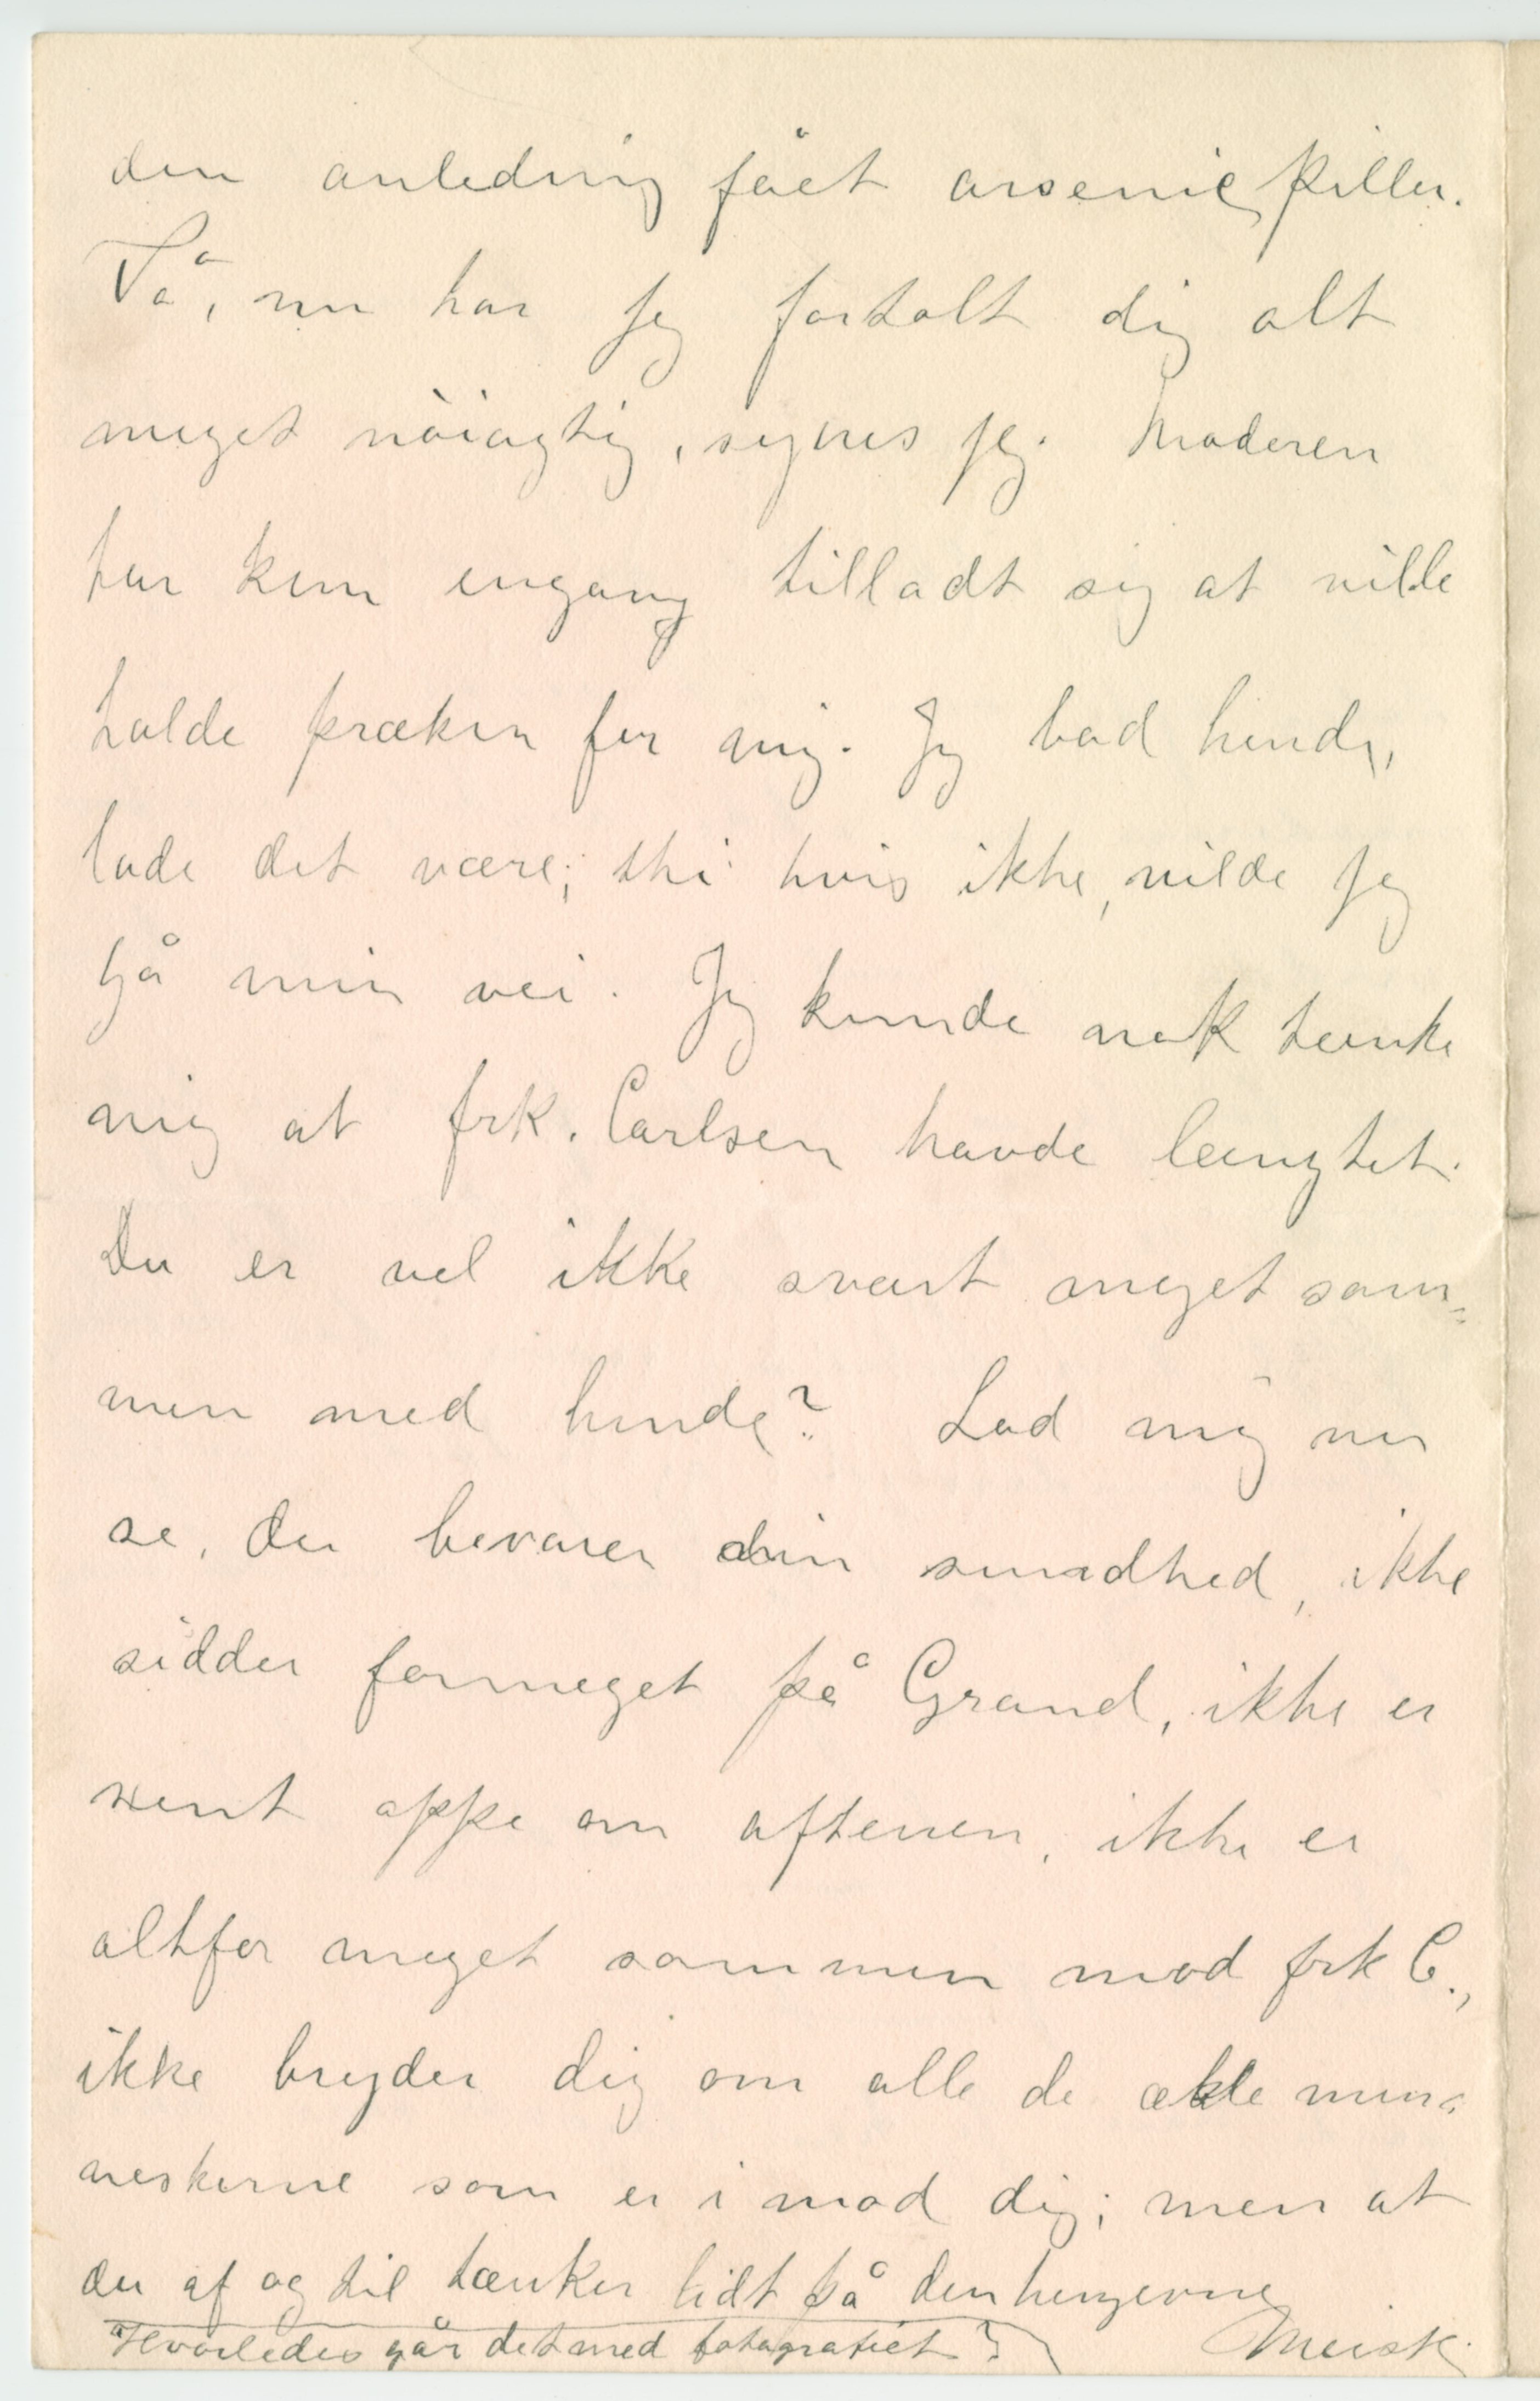 den anledning fået arsenikpiller.
Så, nu har jeg fortalt dig alt
meget nöiagtig, synes jeg. Moderen
har kun engang tilladt sig at ville
holde præken for mig. Jeg bad hende,
lade det være; thi hvis ikke, vilde jeg
gå min vei. Jeg kunde nok tænke
mig at frk. Carlsen havde længtet.
Du er vel ikke svært meget sam=
men med hende? Lad mig nu
se, du bevarer din sundhed, ikke
sidder formeget på Grand, ikke er
sent oppe om aftenen, ikke er
altfor meget sammen med frk C.,
ikke bryder dig om alle de ækle men=
neskerne som er imod dig; men at
du af og til tænker lidt på den hengivne
Hvorledes går det med fotografiet?